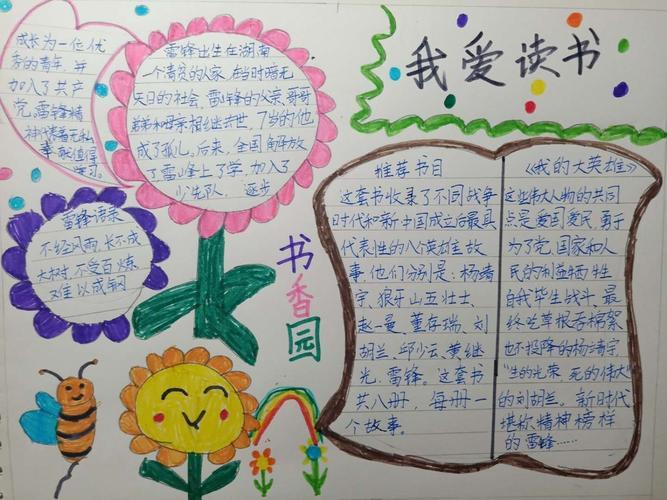 我爱读书
雷锋出生在湖南
一个清贫的人家,在当时暗无
天日的社会,雷锋的父亲,哥哥
弟弟和母亲相继去世,7岁的他
成了孤儿。后来,全国解放
了雷峰上了学,加入了
少先队,逐步
成长为一位优
秀的青年,并
加入了共产
党,雷锋精
神情着无私
奉献值得
学习。
雷锋语录
不经风雨,长不成
大树,不受百炼
难以成钢
书香园
推荐书目
这套书收录了不同战争
时代和新中国成立后最具
代表性的八个英雄故
事,他们分别是:杨靖
宇、狼牙山五壮士、
赵一曼、董存瑞、刘
胡兰、邱少云、黄继
光、雷锋。这套书
共八册,每册一
个故事。
《我的大英雄》
这些伟大人物的共同
点是爱国爱民,勇于
为了党、国家和人
民的利益牺牲
自我毕生战斗、最
终吃草根吞棉絮
也不投降的杨靖宇
"生的光荣,死的伟大"
的刘胡兰。新时代
堪称精神榜样
的雷锋……